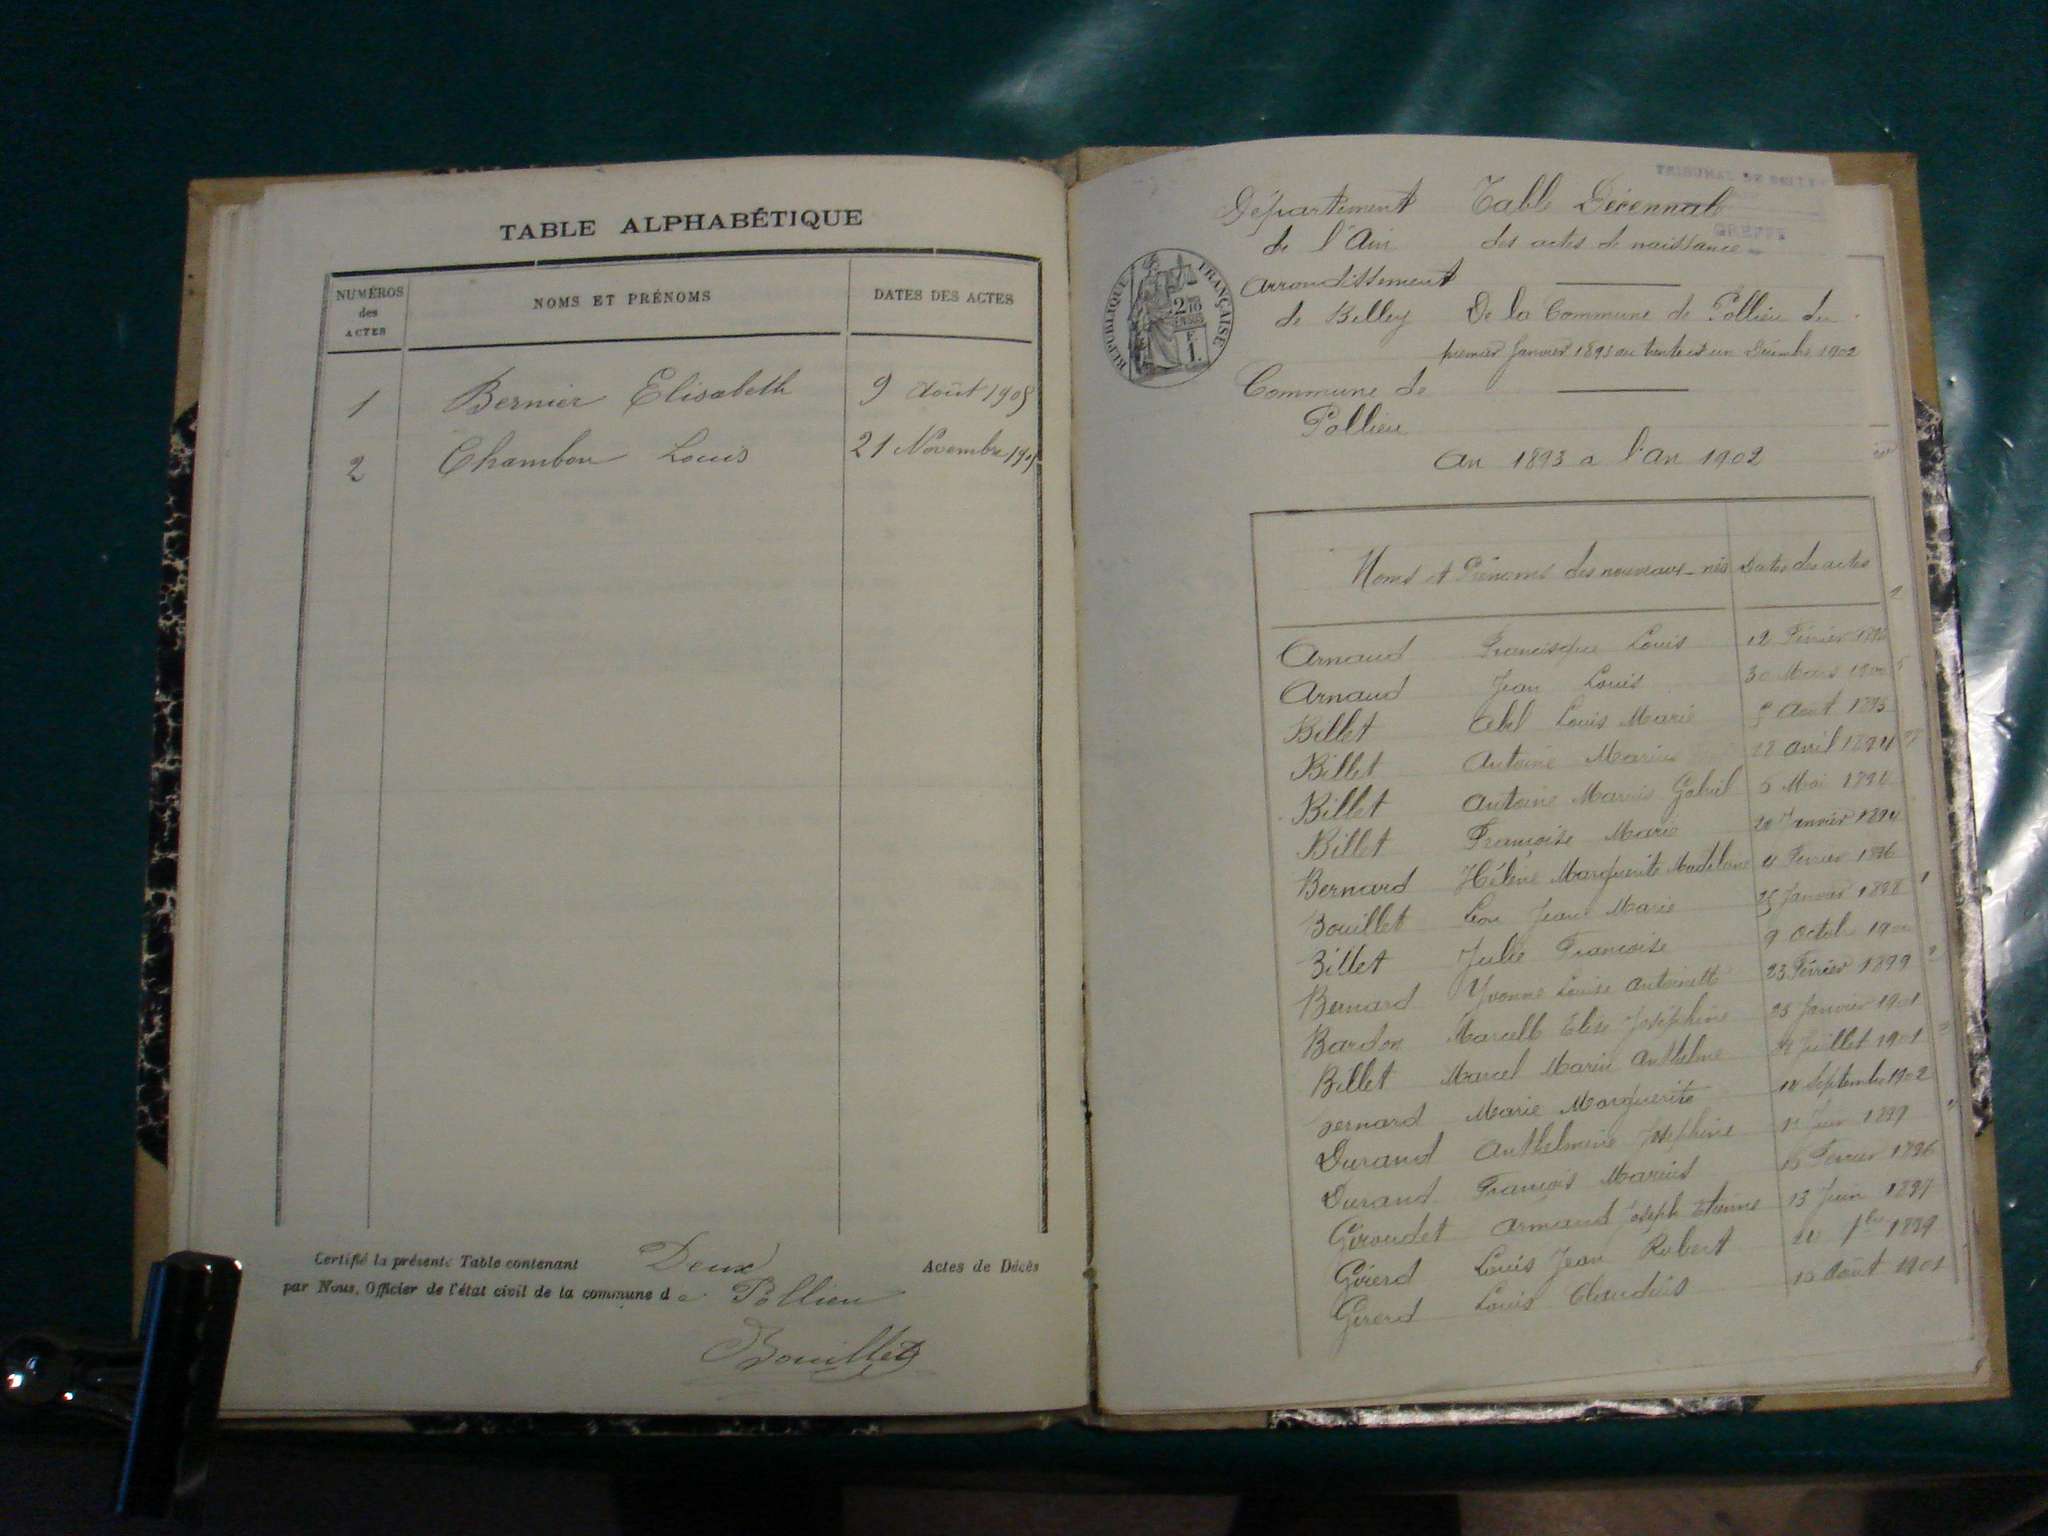 TABLE ALPHABÉTIQUE
NUMÉROS des ACTES NOMS ET PRÉNOMS DATES DES ACTES
1 Bernier Elisabeth 9 Août
2 Chambon Louis 21 Novembre
Certifié la présente Table contenant Deux Actes de Décès
par Nous, Officier de l'état civil de la commune de Pollieu
Bouillet
TRIBUNAL DE
GREFFE
Département
de l'Ain
Arrondissement
de Belley
Commune de
Pollieu
RÉPUBLIQUE FRANÇAISE
Table Décennale
des actes de naissance
De la Commune de Pollieu du
premier Janvier 1893 au trente et un Décembre 1902
An 1893 a l'An 1902
Noms et Prénoms des nouveaux-nés Dates des actes
Arnaud Francisque Louis 12 Février
Arnaud Jean Louis 30 Mars 1900
Billet Abel Louis Marie Août 1895
Billet Antoine Marius avril 1894
Billet Antoine Marius Gabriel 5 Mai
Billet Françoise Marie 20 Janvier 1894
Bernard Hélène Marguerite Madeleine Février 1896
Bouillet Leon Jean Marie 25 Janvier 1898
Billet Julie Françoise 9 Octobre
Bernard Yvonne Louise Antoinette 23 Février 1899
Bardon Marcelle Elise Joséphine 25 Janvier 1901
Billet Marcel Marin Anthelme Juillet 1901
Bernard Marie Marguerite Septembre 1902
Durand Anthelmine Joséphine Juin 1897
Durand François Marius 15 Février 1896
Giroudet Armand Joseph Etienne 13 Juin 1897
Girerd Louis Jean Robert 1899
Girerd Louis Claudius 10 Août 1901